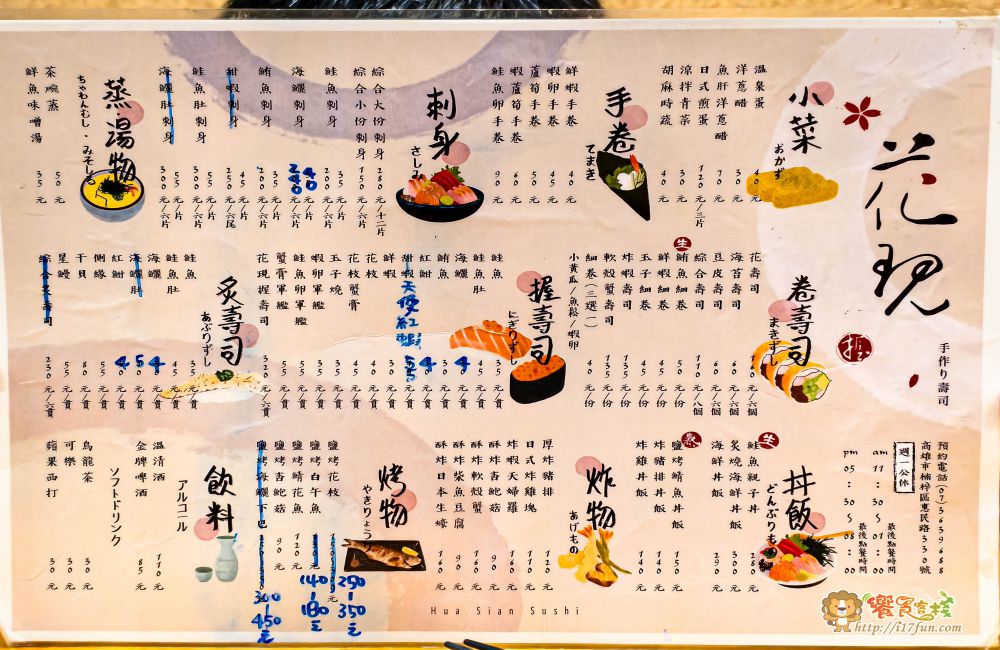 花現
手作り壽司
握
預約電話(07)3639688
高雄市楠梓區惠民路330號
週一公休
am 11:30~01:00 最後點餐時間
pm 05:30~08:00 最後點餐時間
小菜
おかず
溫泉蛋 40元
洋蔥醋 30元
魚肝洋蔥醋 70元
日式煎蛋 120元/三片
涼拌青菜 30元
胡麻時蔬 40元
手卷
てまき
鮮蝦手卷 40元
蝦卵手卷 45元
蘆筍手卷
蝦蘆筍手卷 60元
鮭魚卵手卷 90元
刺身
さしみ
綜合大份刺身 280元/十二片
綜合小份刺身 150元/六片
鮭魚刺身 35元/片 200元/六片
海鱺刺身 40 240
鮪魚刺身 35元/片 200元/六片
甜蝦刺身 45元/片 250元/六尾
鮭魚肚刺身 55元/片 300元/六片
海鱺肚刺身 55元/片 300元/六片
蒸湯物
ちゃわんむし・みそしる
茶碗蒸 50元
鮮魚味噌湯 35元
卷壽司
まきずし
花壽司
海苔壽司
豆皮壽司
綜合壽司
生
鮪魚細卷
鮮蝦細卷
玉子細卷
炸蝦壽司 135元/份
軟殼蟹壽司 135元/份
細卷(三選一) 40元/份
小黃瓜/魚鬆/蝦卵
握壽司
にぎりずし
鮭魚
鮭魚肚
海鱺 4
鮪魚
紅魽 4
甜蝦 天使紅蝦 55
鮮蝦
花枝
花枝蟹膏
玉子燒
蝦卵軍艦
鮭魚卵軍艦
蟹膏軍艦
花現握壽司 320元/六貫
炙壽司
あぶりずし
鮭魚
鮭魚肚
海鱺 4
海鱺肚 5
紅魽 4
側緣
干貝
星鰻
綜合炙壽司 230元/六貫
丼飯
どんぶりもの
生
鮭魚親子丼 280元
炙燒海鮮丼飯 300元
海鮮丼飯 290元
熟
鹽烤鯖魚丼飯 150元
炸豬排丼飯 140元
炸雞丼飯 140元
炸物
あげもの
厚炸豬排 120元
日式炸雞塊 110元
炸蝦天婦羅 160元
酥炸杏鮑菇 90元
酥炸軟殼蟹 160元
酥炸柴魚豆腐 90元
酥炸日本生蠔 160元
烤物
やきりょう
鹽烤花枝 250-350元
鹽烤白午魚 140-180元
鹽烤鯖花魚 120元
鹽烤杏鮑菇 90元
鹽烤海鱺下巴 300-450元
飲料
アルコール
溫清酒 110元
金牌啤酒 85元
ソフトドリンク
烏龍茶 30元
可樂 30元
蘋果西打 30元
Hua Sian Sushi
饗食客棧
http://i17fun.com/